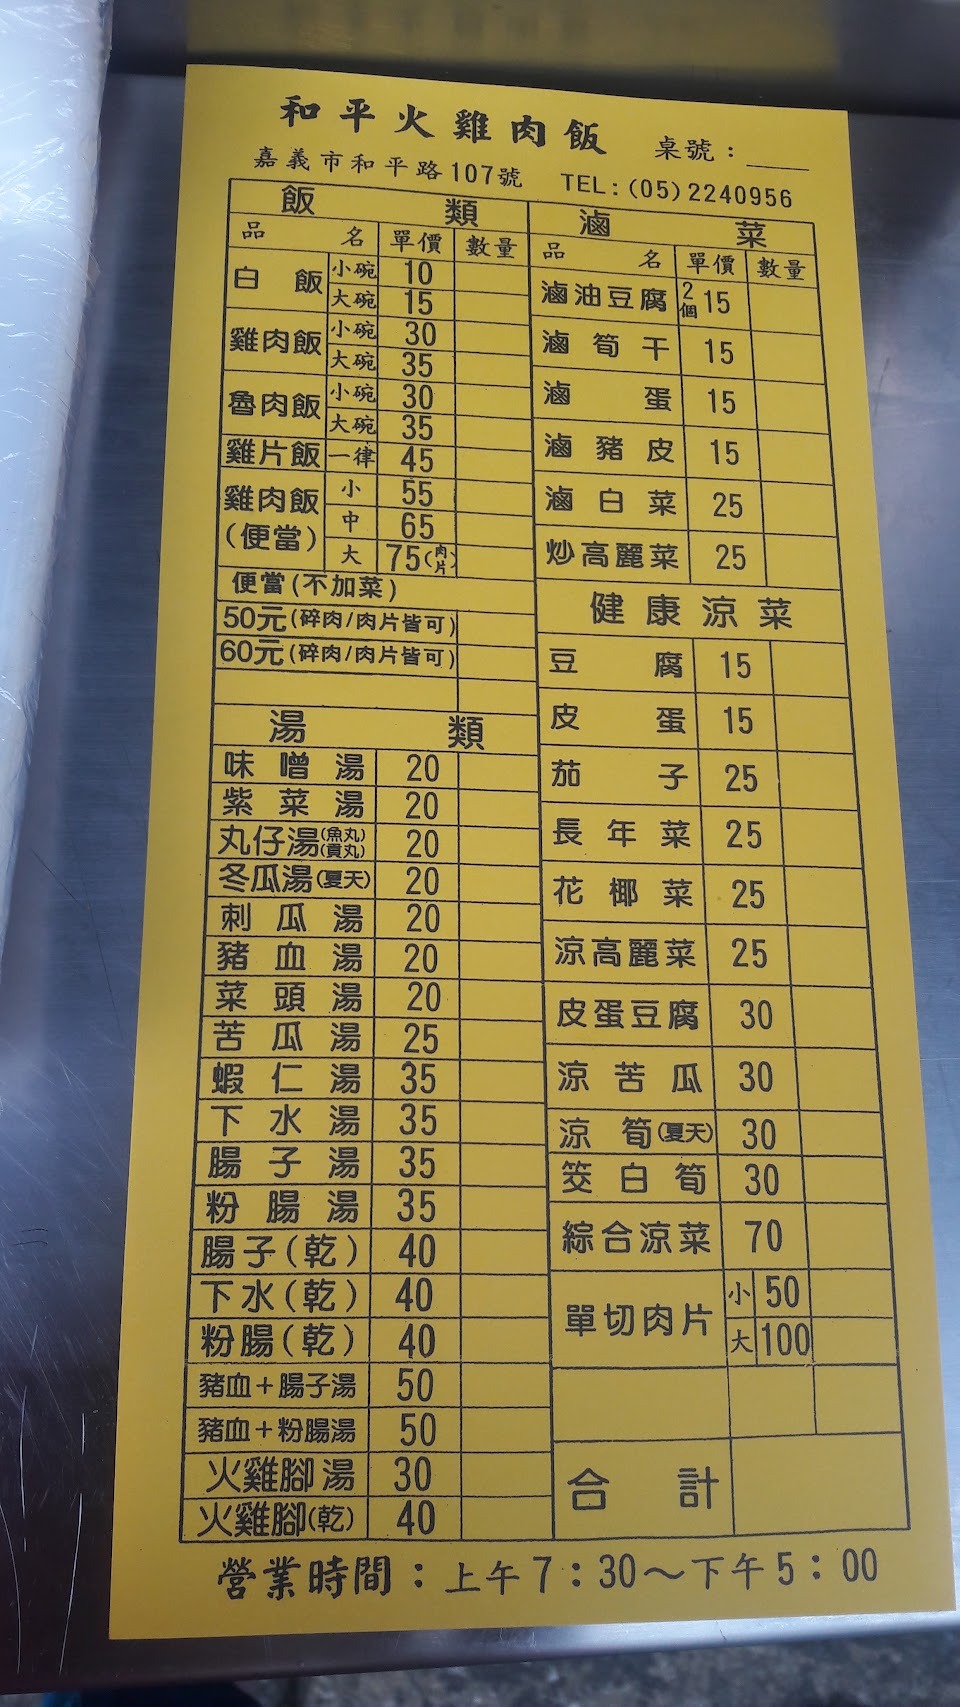 和平火雞肉飯 桌號：
嘉義市和平路107號 TEL:(05)2240956
飯類
品名 單價 數量
白飯 小碗 10
大碗 15
雞肉飯 小碗 30
大碗 35
魯肉飯 小碗 30
大碗 35
雞片飯 一律 45
雞肉飯(便當) 小 55
中 65
大 75(肉片)
便當(不加菜)
50元(碎肉/肉片皆可)
60元(碎肉/肉片皆可)
湯類
味噌湯 20
紫菜湯 20
丸仔湯(魚丸)(貢丸) 20
冬瓜湯(夏天) 20
刺瓜湯 20
豬血湯 20
菜頭湯 20
苦瓜湯 25
蝦仁湯 35
下水湯 35
腸子湯 35
粉腸湯 35
腸子(乾) 40
下水(乾) 40
粉腸(乾) 40
豬血+腸子湯 50
豬血+粉腸湯 50
火雞腳湯 30
火雞腳(乾) 40
滷菜
品名 單價 數量
滷油豆腐 2個15
滷筍干 15
滷蛋 15
滷豬皮 15
滷白菜 25
炒高麗菜 25
健康涼菜
豆腐 15
皮蛋 15
茄子 25
長年菜 25
花椰菜 25
涼高麗菜 25
皮蛋豆腐 30
涼苦瓜 30
涼筍(夏天) 30
筊白筍 30
綜合涼菜 70
單切肉片 小 50
大 100
合計
營業時間：上午7：30～下午5：00